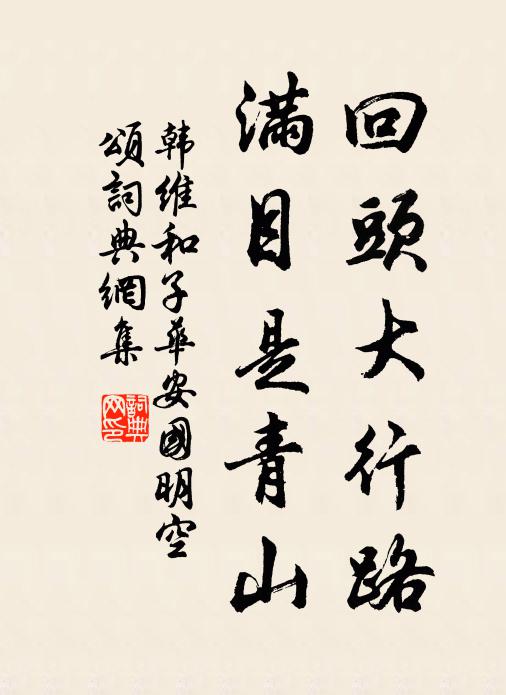 回頭大行路
滿目是青山
韩維和子華安國明空
頌詞典網集
詞典
网印